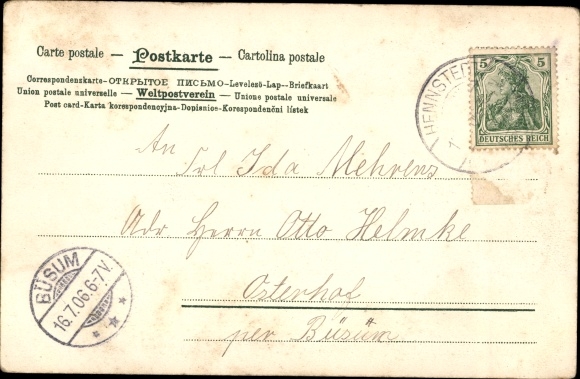 Carte postale — Postkarte — Cartolina postale
Correspondenzkarte-ОТКРЫТОЕ ПИСЬМО-Levelező-Lap--Briefkaart
Union postale universelle — Weltpostverein — Unione postale universale
Post card-Karta korespondencyjna-Dopisnice-Korespondenční lístek
HENNSTE
5 5
DEUTSCHES REICH
An
Frl Ida Mehrens
Adr Herrn Otto Helmke
Osterhof
per Büsum
BÜSUM
16.7.06.6-7V.